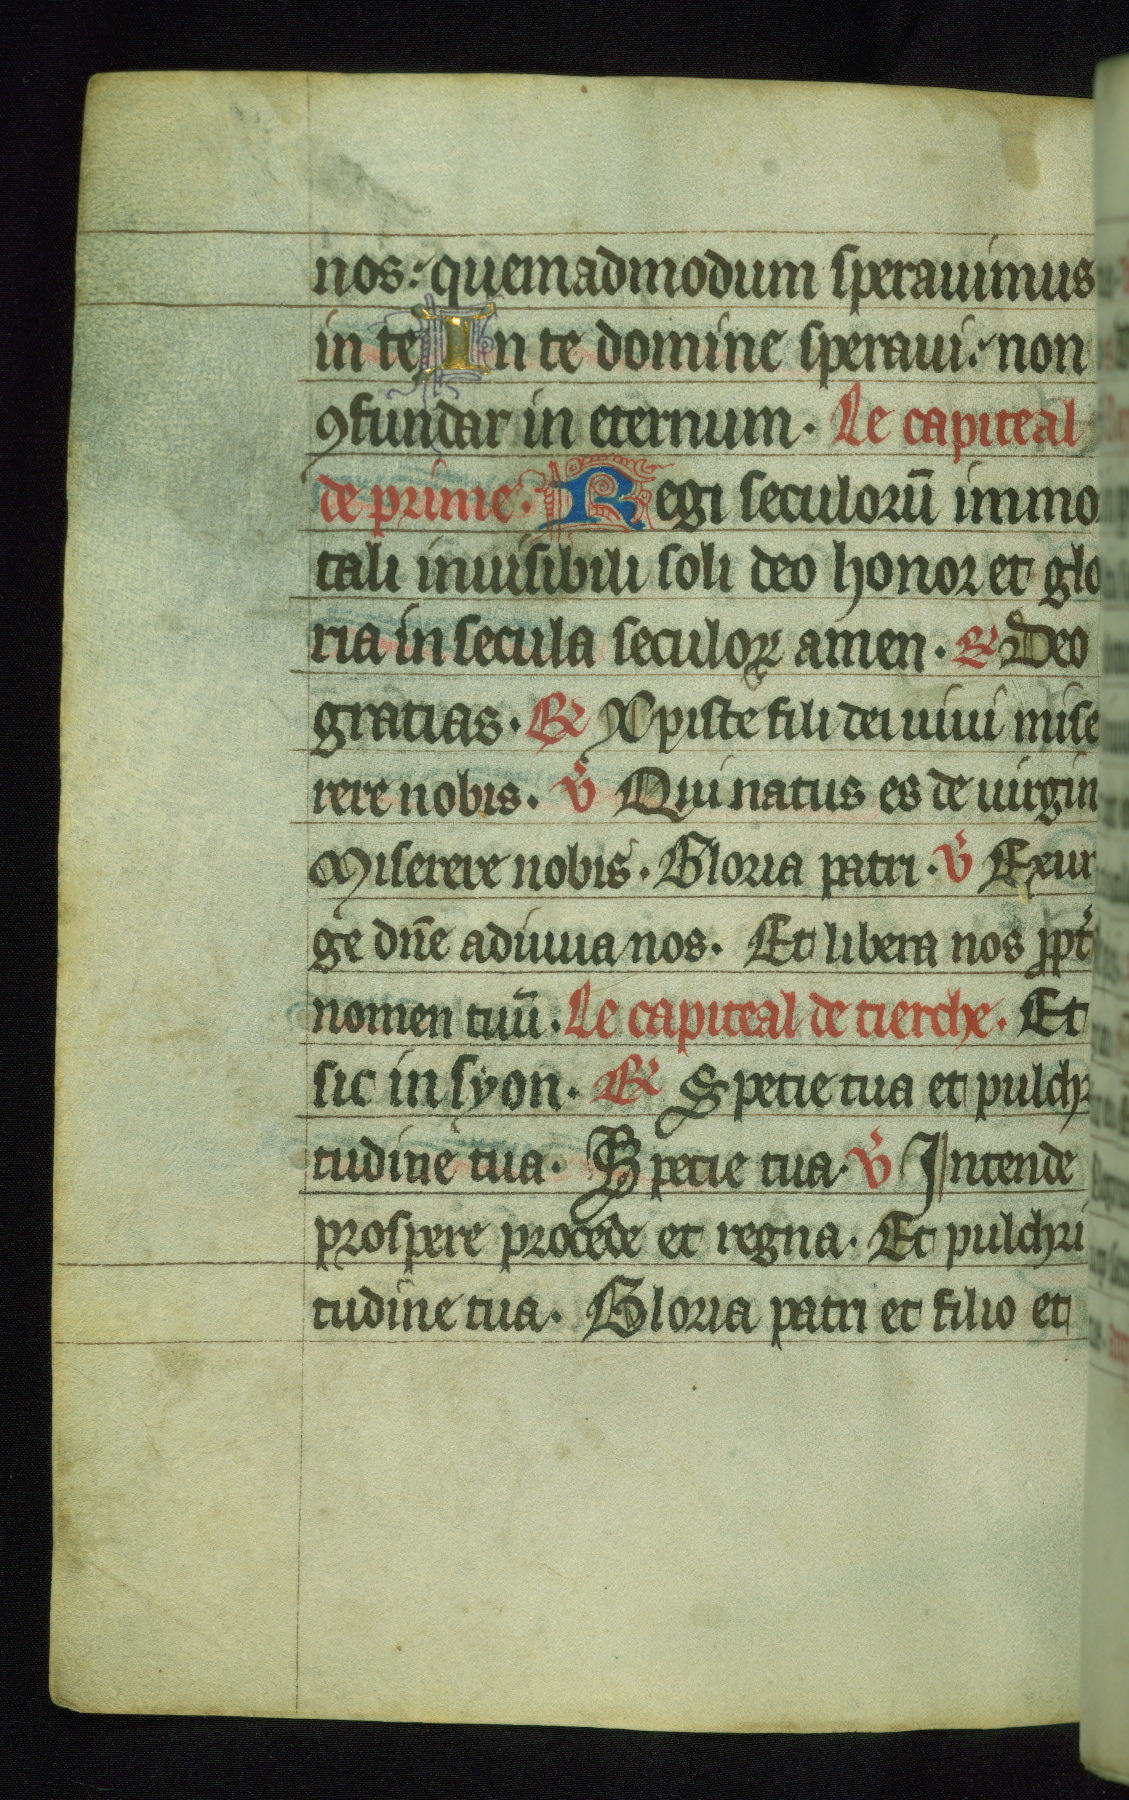 nos: quemadmodum sperauimus
in te In te domine speraui: non
ꝯfundar in eternum. Le capiteal
de prime. Regi seculorū immo
tali inuisibili soli deo honor et glo
ria in secula seculoꝝ amen. ℟ Deo
gratias. ℟ Xpiste fili dei uiui mise
rere nobis. ℣ Qui natus es de uirgin
Miserere nobis. Gloria patri. ℣ Exur
ge dn̄e adiuua nos. Et libera nos ꝓpt̓
nomen tuū. Le capiteal de tierche. Et
sic in syon. ℟ Specie tua et pulchr
tudine tua. Specie tua. ℣ Intende
prospere procede et regna. Et pulchri
tudine tua. Gloria patri et filio et